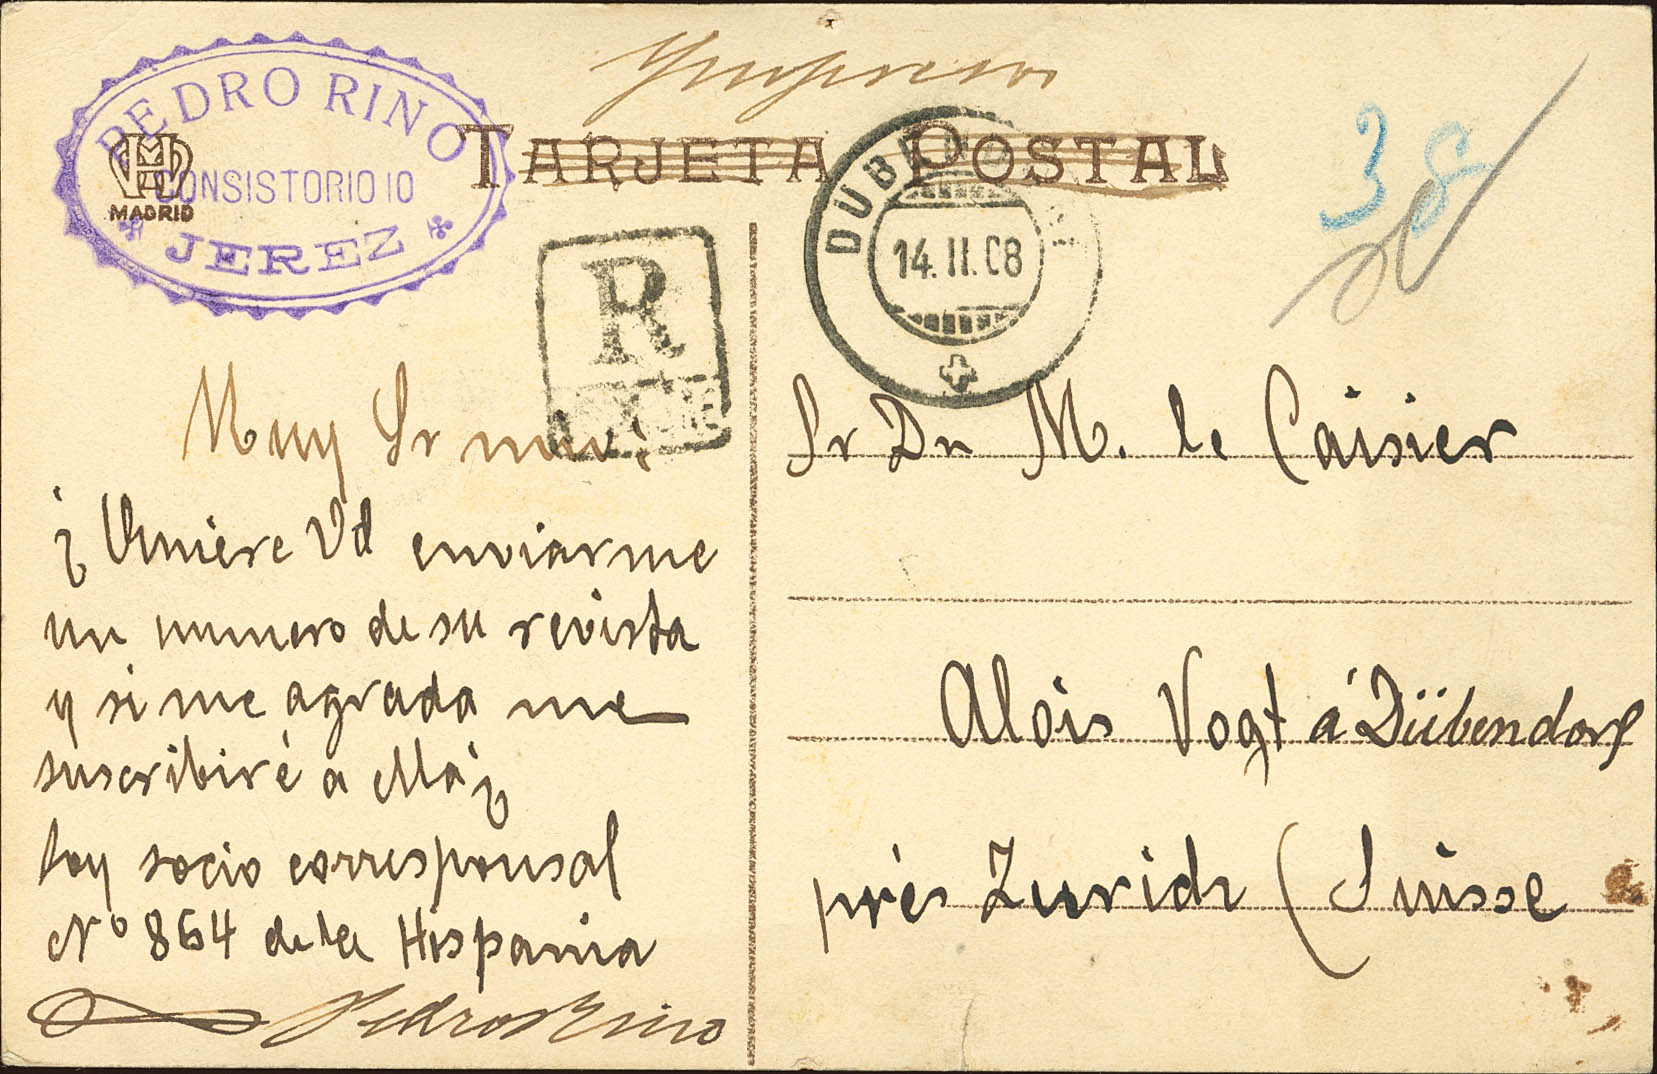 Impresos
TARJETA POSTAL
PEDRO RINO
CONSISTORIO 10
JEREZ
HM
MADRID
R
DÜBENDORF
14.II.08
38
Muy Sr mio:
¿ Quiere Vd enviarme
un numero de su revista
y si me agrada me
suscribiré a ella?
Soy socio corresponsal
Nº 864 de la Hispania
Pedro Rino
Sr Dn M. le Caisier
Alois Vogt á Dübendorf
prés Zurich (Suisse